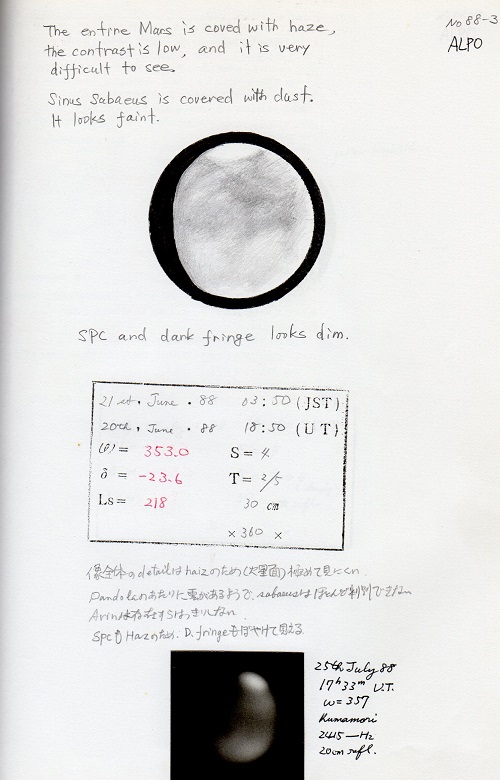 No 88-3
ALPO
The entire Mars is coved with haze,
the contrast is low, and it is very
difficult to see.
Sinus Sabaeus is covered with dust.
It looks faint.
SPC and dark fringe looks dim.
21 st, June . 88 03:50 (JST)
20th, June . 88 18:50 (UT)
(ω) = 353.0 S = 4
δ = -23.6 T = 2/5
Ls = 218 30 cm
× 360 ×
像全体のdetailはhaizのため(火星面)極めて見にくい
のあたりに雲があるようで、sabaeusはほとんど判別できない
Arinは存在すらはっきりしない
SPCもHazのため、D. fringeもぼやけて見える
25th July 88
17h 33m U.T.
ω = 357
Kumamori
2415—H2
20cm refl.